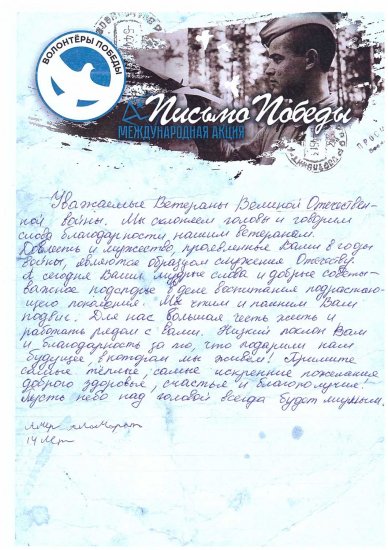 ВОЛОНТЁРЫ ПОБЕДЫ
Письмо Победы
МЕЖДУНАРОДНАЯ АКЦИЯ
Уважаемые Ветераны Великой Отечествен-
ной войны. Мы склоняем головы и говорим
слова благодарности нашим ветеранам.
Доблесть и мужество, проявленные Вами в годы
войны, являются образцом служения Отечеству
А сегодня Ваши мудрые слова и добрые советы-
важное подспорье в деле воспитания подрастаю-
щего поколения. Мы чтим и помним Ваш
подвиг. Для нас большая честь жить и
работать рядом с вами. Низкий поклон Вам
и благодарность за то, что подарили нам
будущее в котором мы живём! Примите
самые тёплые, самые искренние пожелания
доброго здоровья, счастья и благополучия!
Пусть небо над головой всегда будет мирным.
14 лет